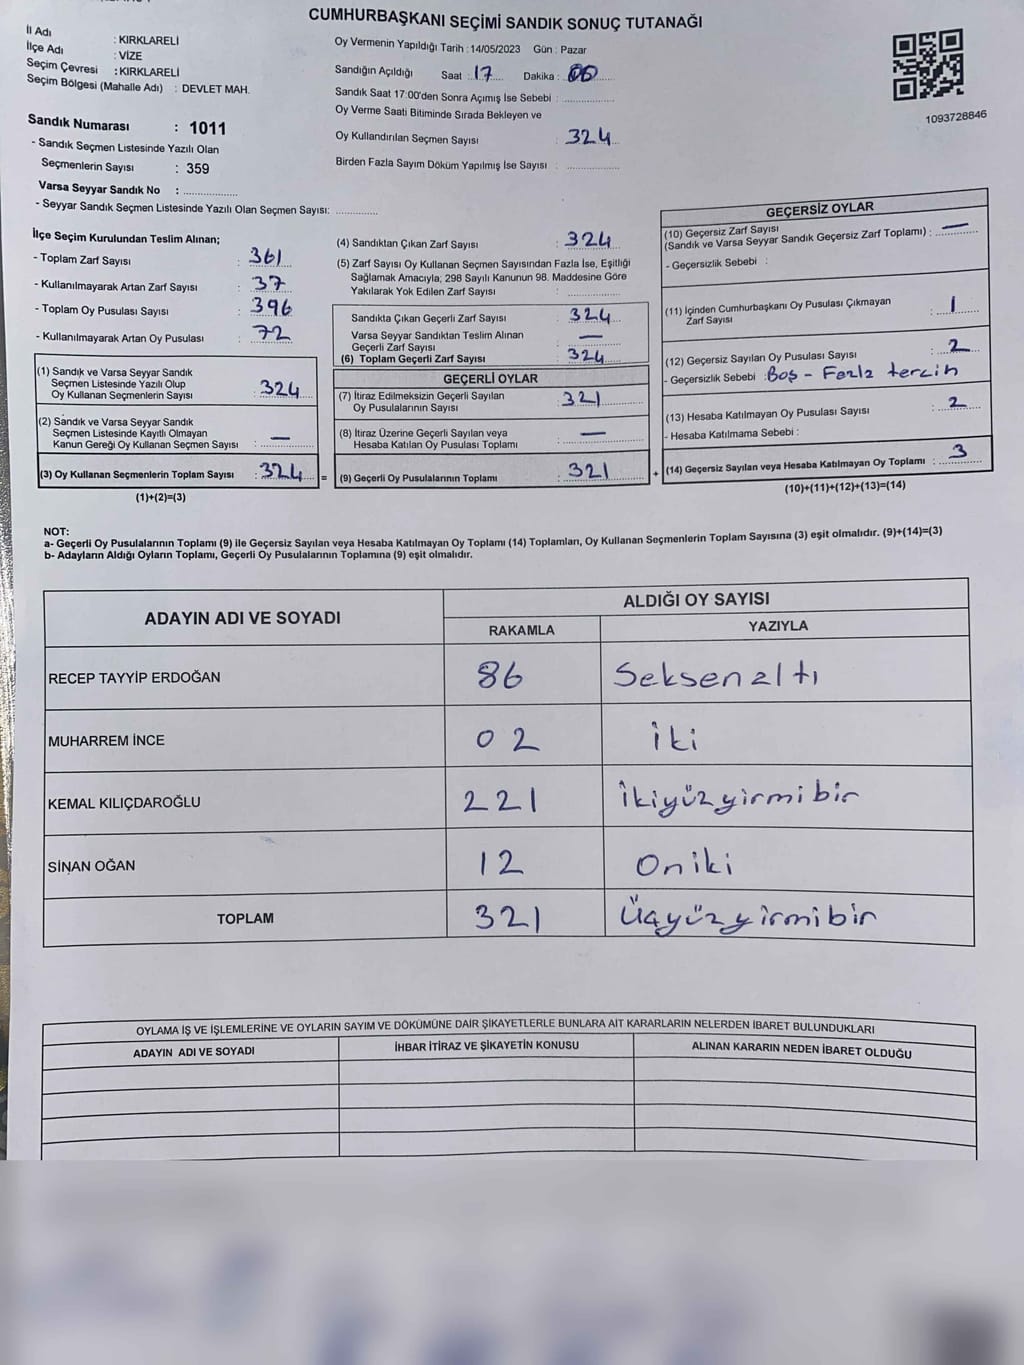 CUMHURBAŞKANI SEÇİMİ SANDIK SONUÇ TUTANAĞI
İl Adı : KIRKLARELİ
İlçe Adı : VİZE
Seçim Çevresi : KIRKLARELİ
Seçim Bölgesi (Mahalle Adı) : DEVLET MAH.
Sandık Numarası : 1011
- Sandık Seçmen Listesinde Yazılı Olan
Seçmenlerin Sayısı : 359
Varsa Seyyar Sandık No : ..................
- Seyyar Sandık Seçmen Listesinde Yazılı Olan Seçmen Sayısı: ..............
Oy Vermenin Yapıldığı Tarih : 14/05/2023 Gün : Pazar
Sandığın Açıldığı Saat : 17 Dakika : 00
Sandık Saat 17:00'den Sonra Açımış İse Sebebi : ................
Oy Verme Saati Bitiminde Sırada Bekleyen ve
Oy Kullandırılan Seçmen Sayısı : 324
Birden Fazla Sayım Döküm Yapılmış İse Sayısı : ................
1093728846
İlçe Seçim Kurulundan Teslim Alınan;
- Toplam Zarf Sayısı : 361
- Kullanılmayarak Artan Zarf Sayısı : 37
- Toplam Oy Pusulası Sayısı : 396
- Kullanılmayarak Artan Oy Pusulası : 72
(1) Sandık ve Varsa Seyyar Sandık
Seçmen Listesinde Yazılı Olup
Oy Kullanan Seçmenlerin Sayısı : 324
(2) Sandık ve Varsa Seyyar Sandık
Seçmen Listesinde Kayıtlı Olmayan
Kanun Gereği Oy Kullanan Seçmen Sayısı : —
(3) Oy Kullanan Seçmenlerin Toplam Sayısı : 324 =
(1)+(2)=(3)
(4) Sandıktan Çıkan Zarf Sayısı : 324
(5) Zarf Sayısı Oy Kullanan Seçmen Sayısından Fazla İse, Eşitliği
Sağlamak Amacıyla; 298 Sayılı Kanunun 98. Maddesine Göre
Yakılarak Yok Edilen Zarf Sayısı : ................
Sandıkta Çıkan Geçerli Zarf Sayısı : 324
Varsa Seyyar Sandıktan Teslim Alınan
Geçerli Zarf Sayısı : —
(6) Toplam Geçerli Zarf Sayısı : 324
GEÇERLİ OYLAR
(7) İtiraz Edilmeksizin Geçerli Sayılan
Oy Pusulalarının Sayısı : 321
(8) İtiraz Üzerine Geçerli Sayılan veya
Hesaba Katılan Oy Pusulası Toplamı : —
(9) Geçerli Oy Pusulalarının Toplamı : 321 +
GEÇERSİZ OYLAR
(10) Geçersiz Zarf Sayısı
(Sandık ve Varsa Seyyar Sandık Geçersiz Zarf Toplamı) : —
- Geçersizlik Sebebi :
(11) İçinden Cumhurbaşkanı Oy Pusulası Çıkmayan
Zarf Sayısı : 1
(12) Geçersiz Sayılan Oy Pusulası Sayısı : 2
- Geçersizlik Sebebi : Boş - Fazla tercih
(13) Hesaba Katılmayan Oy Pusulası Sayısı : 2
- Hesaba Katılmama Sebebi :
(14) Geçersiz Sayılan veya Hesaba Katılmayan Oy Toplamı : 3
(10)+(11)+(12)+(13)=(14)
NOT:
a- Geçerli Oy Pusulalarının Toplamı (9) ile Geçersiz Sayılan veya Hesaba Katılmayan Oy Toplamı (14) Toplamları, Oy Kullanan Seçmenlerin Toplam Sayısına (3) eşit olmalıdır. (9)+(14)=(3)
b- Adayların Aldığı Oyların Toplamı, Geçerli Oy Pusulalarının Toplamına (9) eşit olmalıdır.
ADAYIN ADI VE SOYADI ALDIĞI OY SAYISI
RAKAMLA YAZIYLA
RECEP TAYYİP ERDOĞAN 86 Seksenaltı
MUHARREM İNCE 02 İki
KEMAL KILIÇDAROĞLU 221 İkiyüzyirmibir
SİNAN OĞAN 12 Oniki
TOPLAM 321 Üçyüzyirmibir
OYLAMA İŞ VE İŞLEMLERİNE VE OYLARIN SAYIM VE DÖKÜMÜNE DAİR ŞİKAYETLERLE BUNLARA AİT KARARLARIN NELERDEN İBARET BULUNDUKLARI
ADAYIN ADI VE SOYADI İHBAR İTİRAZ VE ŞİKAYETİN KONUSU ALINAN KARARIN NEDEN İBARET OLDUĞU